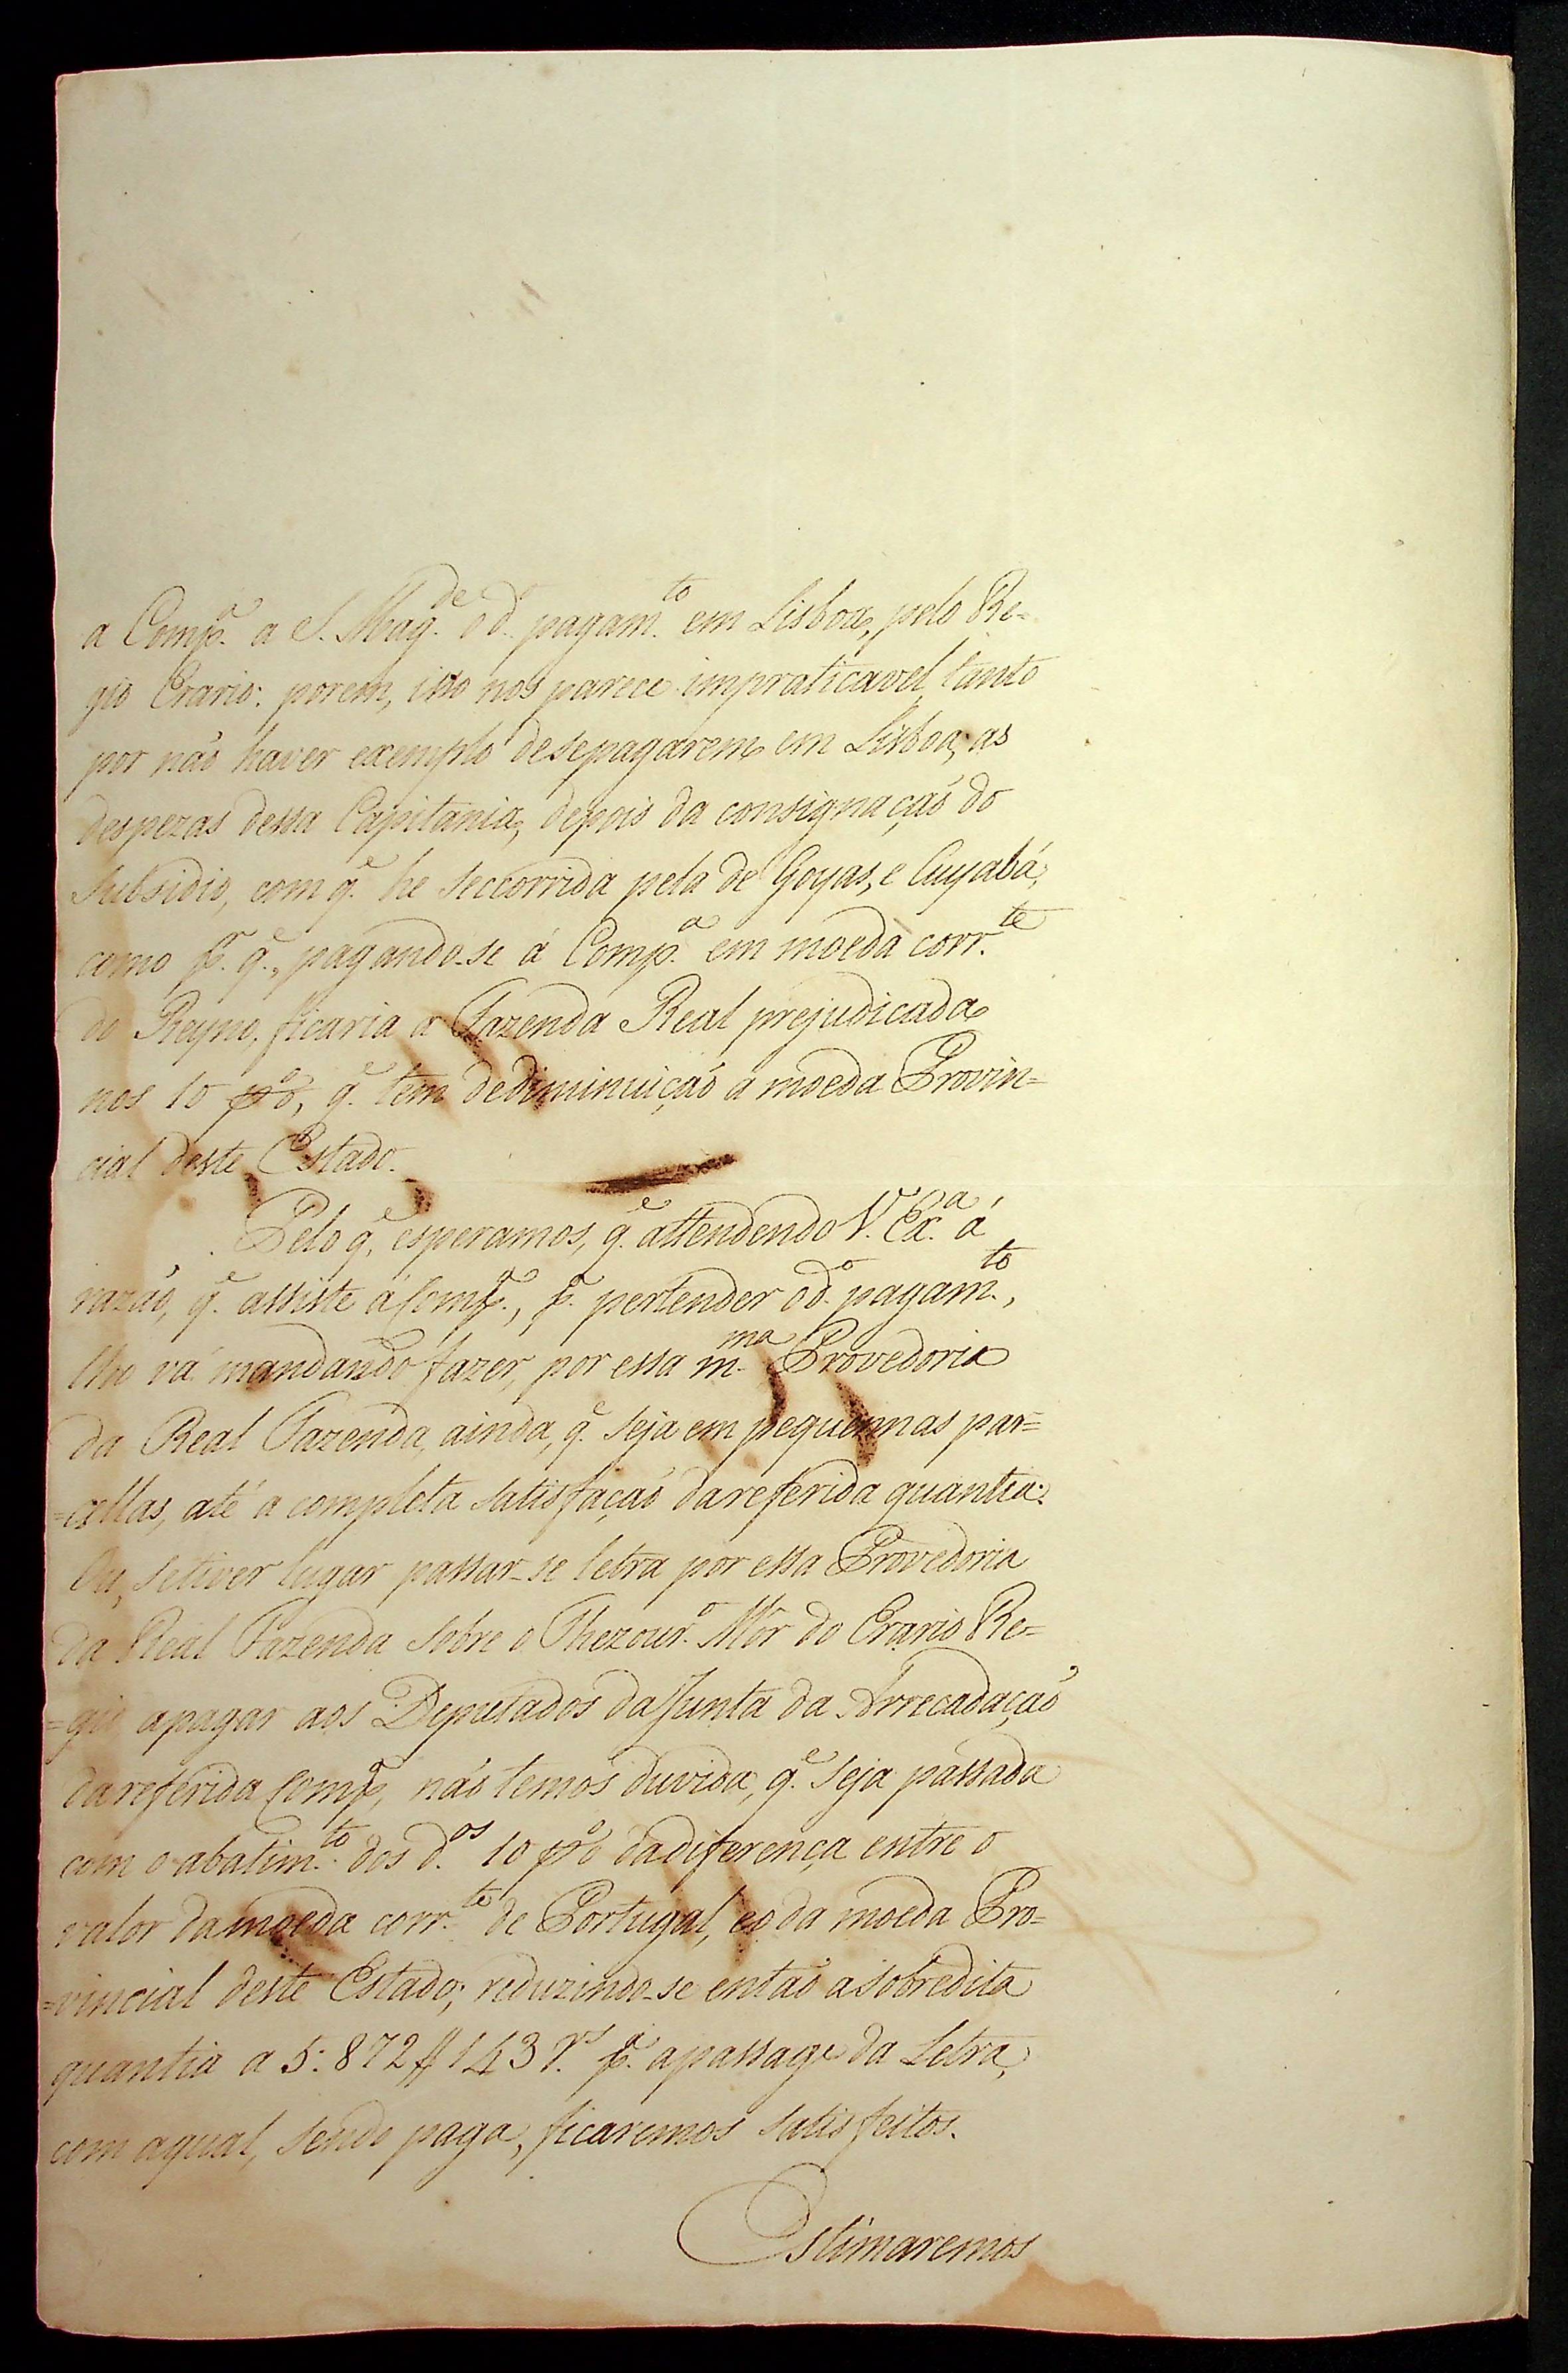 a Comp.ª a S. Mag.de o d.º pagam.to em Lisboa, pelo Re-
gio Erario: porem, isto nos parece impraticavel, tanto
por naõ haver exemplo desepagarem em Lisboa, as
despezas dessa Capitania, depois da consignaçaõ do
Subsidio, com q.e he seccorrida pela de Goyas, e Cuyabá,
como p.r q.e, pagando-se á Comp.ª em moeda corr.te
do Reyno, ficaria a Fazenda Real prejudicada
nos 10 p.º%, q.e tem dediminuiçaõ a moeda Provin=
cial deste Estado.
Pelo q.e esperamos, q.e attendendo V. Ex.ª á
razaõ, q.e assiste á Comp.ª, p.ª pertender o d.º pagam.to,
lho vá mandando fazer, por essa m.ma Provedoria
da Real Fazenda, ainda, q.e seja em pequennas par=
=cellas, até a completa satisfaçaõ dareferida quantia:
Ou, setiver lugar passar-se letra por essa Provedoria
da Real Fazenda sobre o Thezour.º Mór do Erario Re=
=gio apagar aos Deputados daJunta da Arrecadaçaõ
dareferida Comp.ª, naõ temos duvida, q.e seja passada
com o abatim.to dos d.os 10 p.º% dadiferença entre o
valor damoeda corr.te de Portugal, eo da moeda Pro=
=vincial deste Estado; reduzindo-se entaõ asobredita
quantia a 5:872$143 r.s p.ª apassage da Letra,
com aqual, sendo paga, ficaremos satisfeitos.
Estimaremos